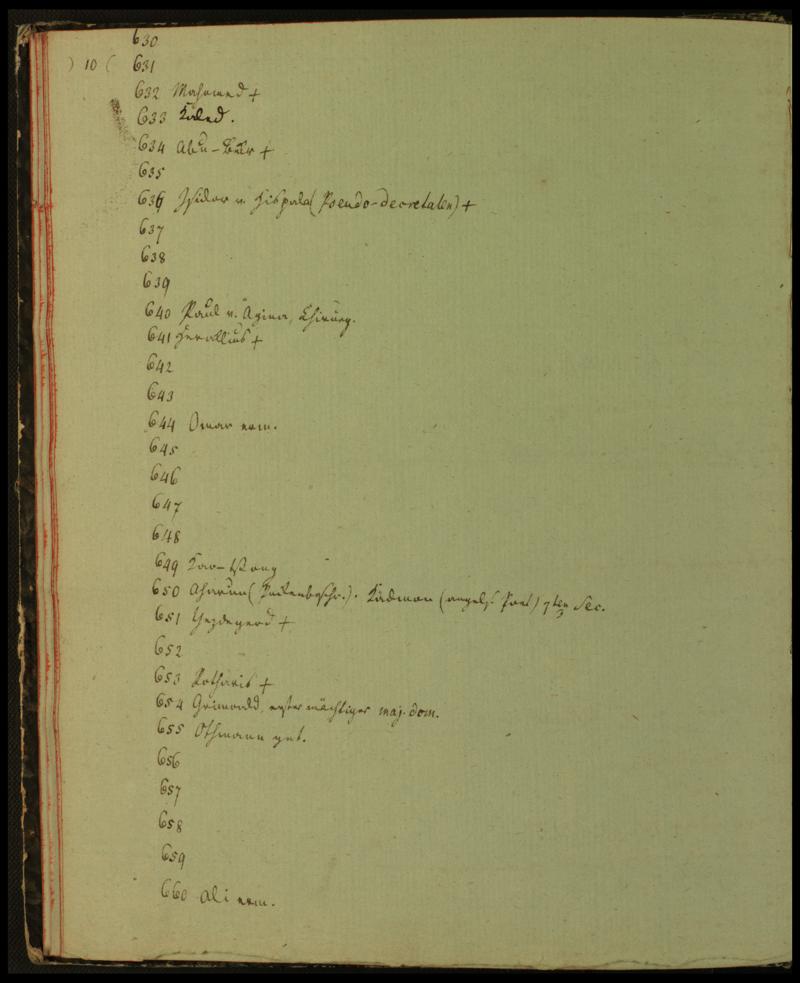 630
) 10 ( 631
632 Mahomed +
633 Kaled.
634 Abu-Bekr +
635
636 Isidor v. Hispala (Pseudo-decretalen) +
637
638
639
640 Paul v. Ägina, Chirurg.
641 Heraklius +
642
643
644 Omar erm.
645
646
647
648
649 Kao-Tsong
650 Aharun (Pockenbschr.). Kädmon (angels. Poet) 7ten Sec.
651 Yezdegerd +
652
653 Rotharis +
654 Grimoald, erster mächtiger maj. dom.
655 Othmann get.
656
657
658
659
660 Ali erm.